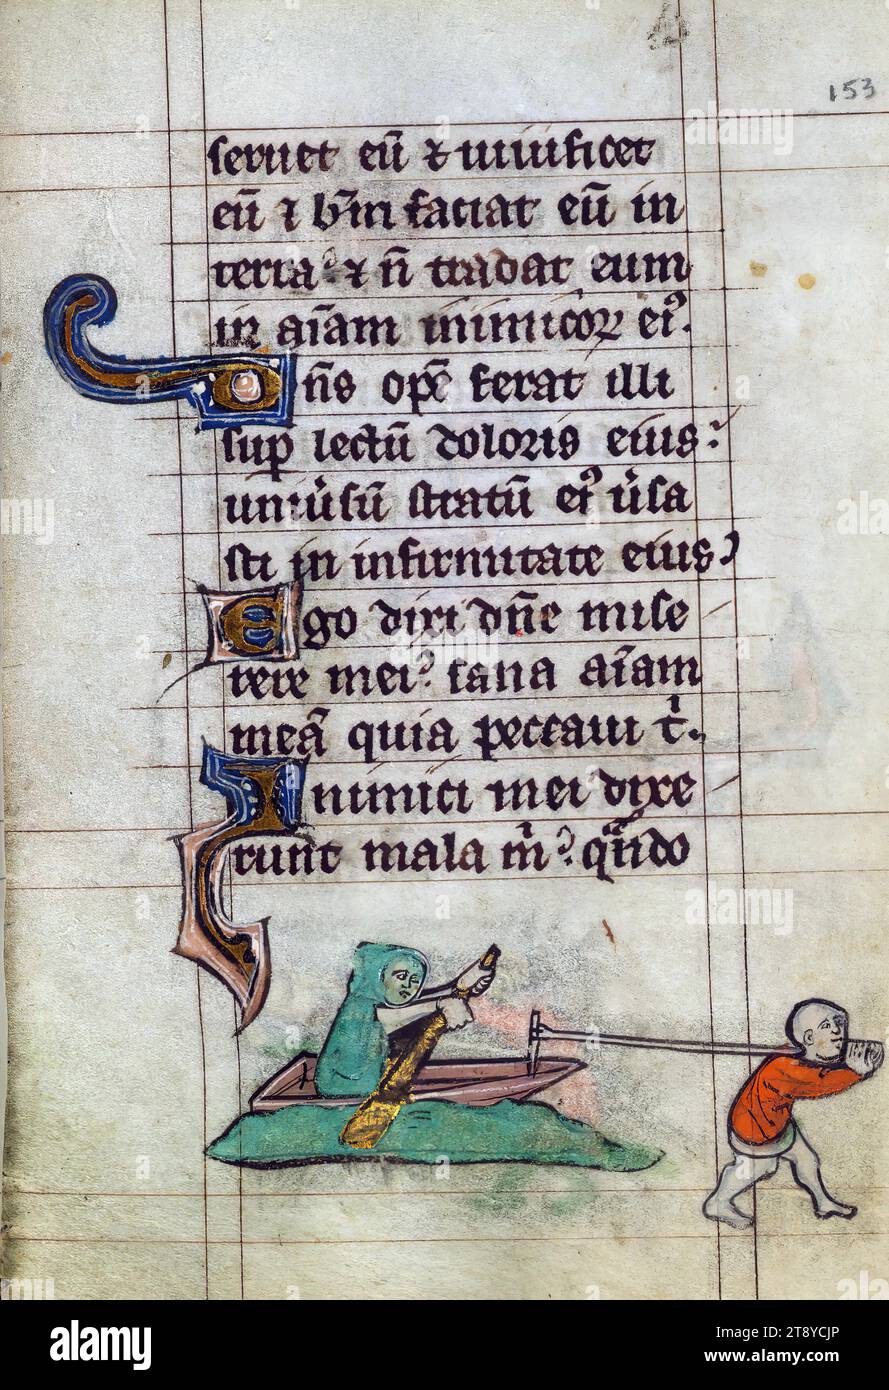 153
seruet eū & uiuificet
eū & b̄m faciat eū in
terra? & n̄ tradat eum
in aīam inimicoꝝ eiꝰ.
Dn̄s opē ferat illi
sup̄ lectū doloris eius:
uniu̓sū stratū eiꝰ u̓sa
sti in infirmitate eius?
Ego dixi dn̄e mise
rere mei? sana aīam
meā quia peccaui t̓.
Inimici mei dixe
runt mala m̓? quando
alamy
Image ID: 2T8YCJP
www.alamy.com